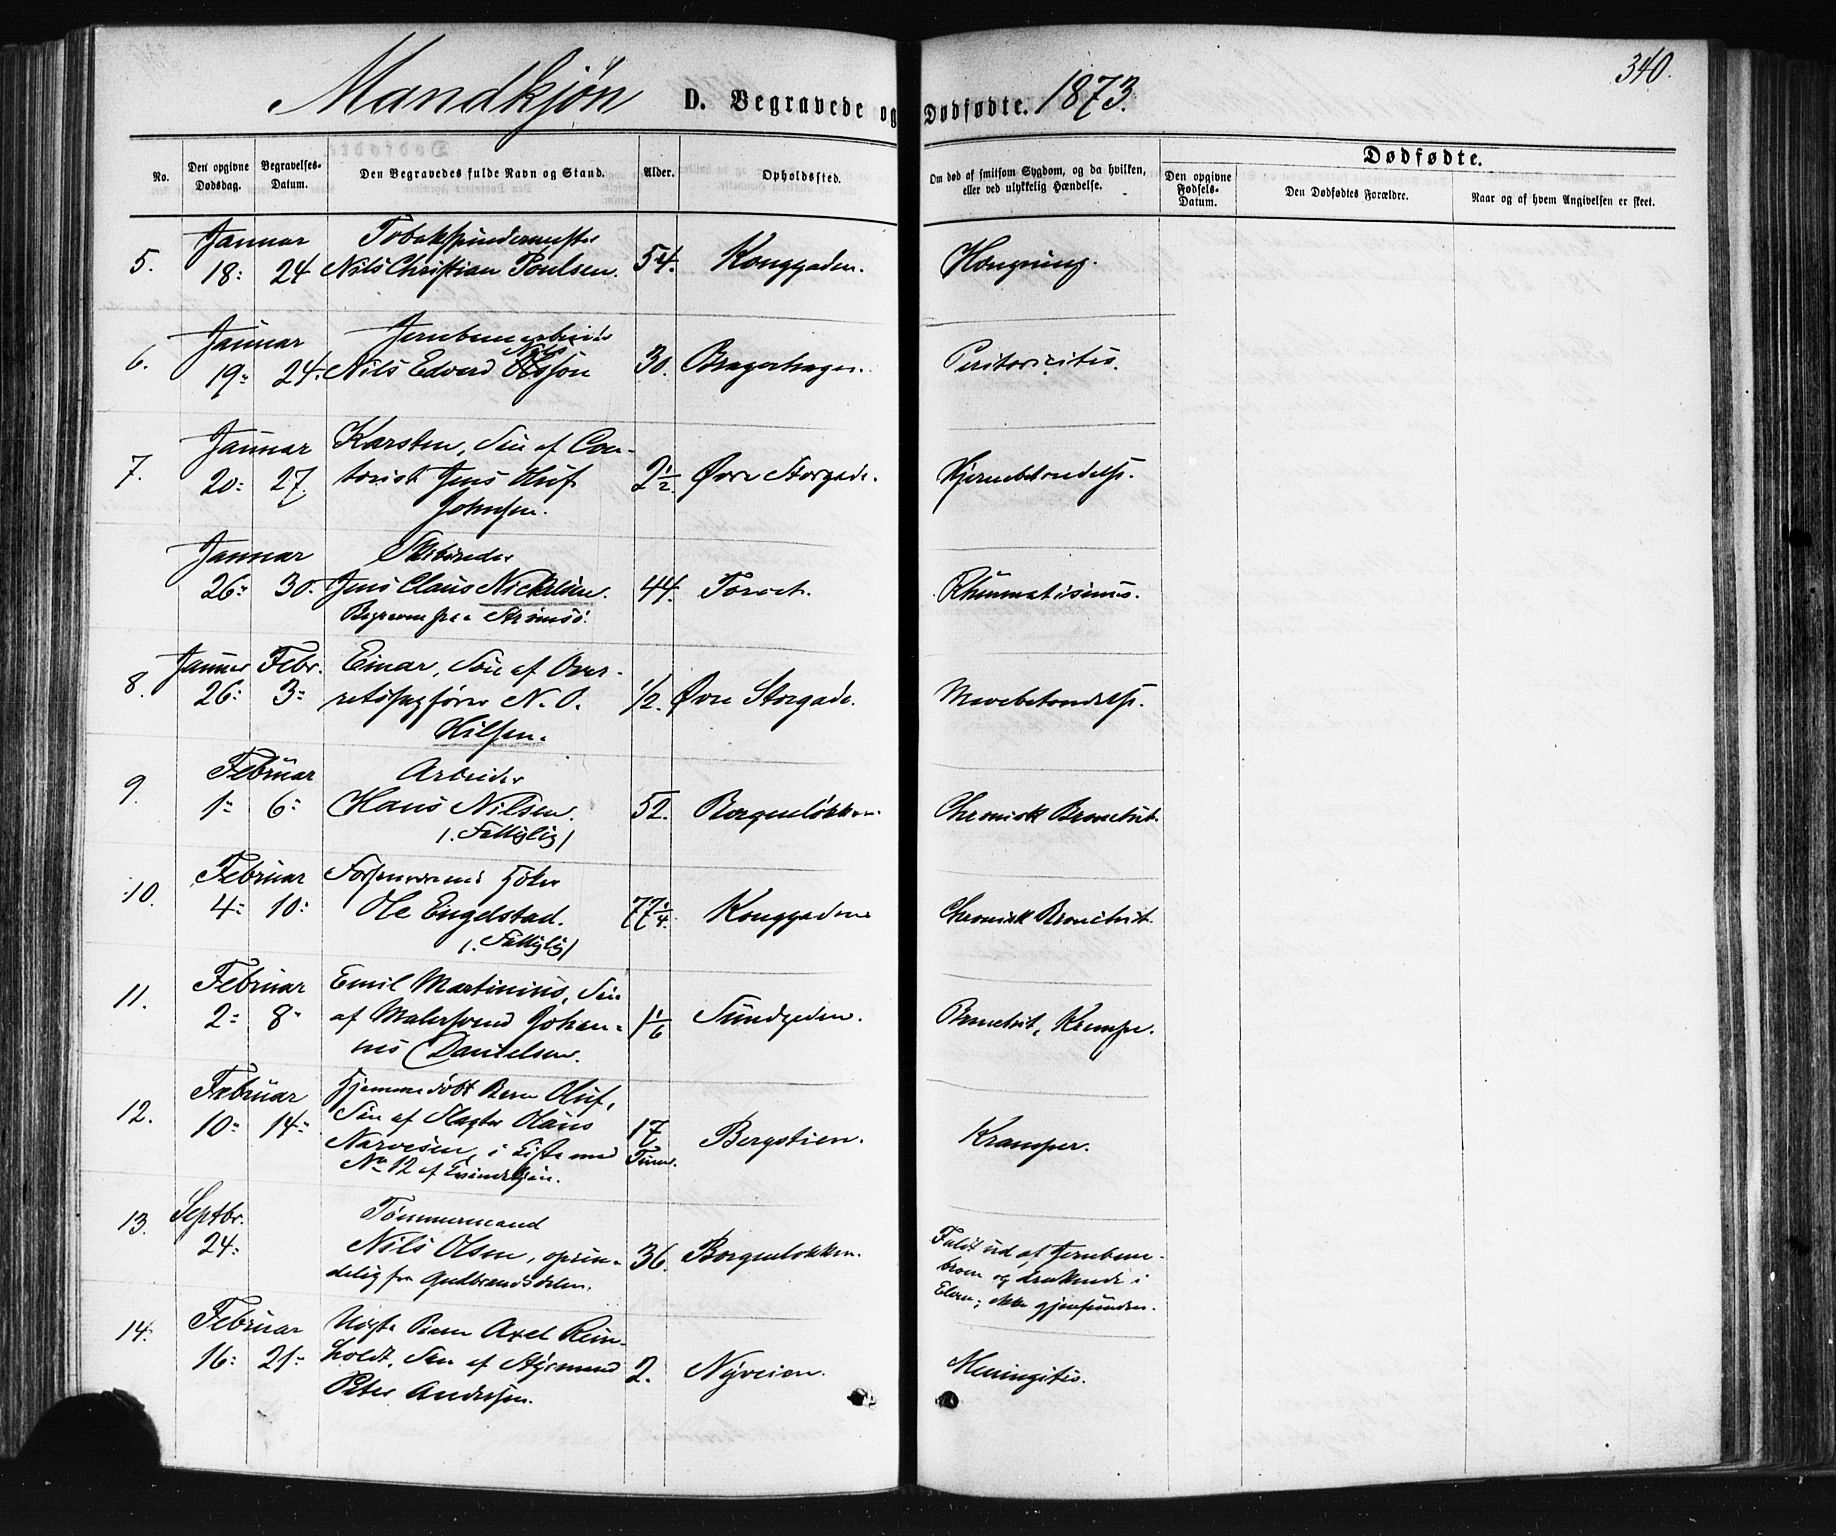 340.
Mandkjøn D. Begravede og Dødfødte. 1873.
No.
Den opgivne Dødsdag.
Begravelses-Datum.
Den Begravedes fulde Navn og Stand.
Alder.
Opholdssted.
Om død af smitsom Sygdom, og da hvilken, eller ved ulykkelig Hændelse.
Dødfødte.
Den opgivne Fødsels-Datum.
Den Dødfødtes Forældre.
Naar og af hvem Angivelsen er skeet.
Januar Tobakspindermester
5. 18: 24 Nils Christian Poulsen. 54. Konggaden.
Januar Jernbanearbeider
Nils
6. 19: 24. Nils Edvard 30. Bragerhagen.
Januar Karsten, Søn af Con-
7. 20: 27. torist Jens Oluf 2½ Øvre Storgade. Hjernebetændelse.
Johnsen.
Januar Skibsreder
26: 30. Jens Claus 44. Torvet. Rheumatismus.
Begraven fra Strømsø.
Januar Febr. Einar, Søn af Over-
8. 26: 3: retssagfører N. O. 1/2. Øvre Storgade. Mavebetændelse.
Nilsen.
Februar Arbeider
9. 1: 6: Hans Nilsen. 52. Borgenløkken. Chronisk Bronchit.
/: Fattiglig /
Februar Forhenværende Høker
10. 4: 10: Ole Engelstad. 77¼. Konggaden Chronisk Bronchit.
/: Fattiglig /
Februar Emil Martinius, Søn
11. 2: 8: af Malersvend Johan- 1 1/6 Sundgaden. Bronchit, Krampe.
nes Danielsen.
Februar Hjemmedøbt Barn Oluf,
12. 10: 14: Søn af Slagter Olaus 17 Timer. Bergstien. Kramper.
Narvesen, i Kiste med
No 12 af Kvindekjøn.
Septbr. Tømmermand
13. 24: Nils Olsen, oprin- 36. Borgenløkken. Faldt ud af Jernbane-
delig fra Gudbrandsdalen. broen og druknede i
Elven; ikke gjenfunden.
Februar Axel Rein-
14. 16: 21: holdt, Søn af Styrmand 2. Nyveien. Meningitis.
Peter Andersen.